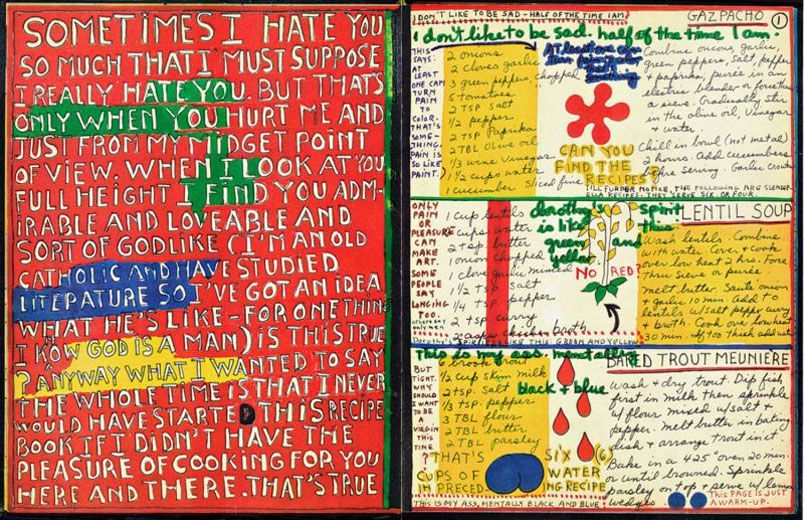 SOMETIMES I HATE YOU
SO MUCH THAT I MUST SUPPOSE
I REALLY HATE YOU. BUT THAT'S
ONLY WHEN YOU HURT ME AND
JUST FROM MY MIDGET POINT
OF VIEW. WHEN I LOOK AT YOU
FULL HEIGHT I FIND YOU ADM-
IRABLE AND LOVEABLE AND
SORT OF GODLIKE (I'M AN OLD
CATHOLIC AND HAVE STUDIED
LITEPATURE SO I'VE GOT AN IDEA
WHAT HE'S LIKE-FOR ONE THING
I KNOW GOD IS A MAN) IS THIS TRUE
? ANYWAY WHAT I WANTED TO SAY
THE WHOLE TIME IS THAT I NEVER
WOULD HAVE STARTED THIS RECIPE
BOOK IF I DIDN'T HAVE THE
PLEASURE OF COOKING FOR YOU
HERE AND THERE. THAT'S TRUE
I DON'T LIKE TO BE SAD-HALF OF THE TIME I AM.
GAZPACHO
1
I don't like to be sad. half of the time I am.
THIS
SAYS:
AT
LEAST
ONE CAN
TURN
PAIN
TO
COLOR.
THAT'S
SOME-
THING.
PAIN IS
SO LIKE
PAINT.)
2 onions
2 cloves garlic
3 green peppers, chopped
5 tomatoes
2 TSP salt
1/2 pepper
2 TSP Paprika
2 TBL Olive oil
1/3 wine vinegar
1 1/2 cups water
1 cucumber sliced fine
At least one can
turn pain to color
that's
something
CAN YOU
FIND THE
RECIPES?
Combine onions, garlic,
green peppers, salt, pepper
+ paprika, purée in an
electric blender or force thru
a sieve. Gradually stir
in the olive oil, vinegar
+ water.
Chill in bowl (not metal)
2 hours. Add cucumbers
before serving. Garlic Croutons
TILL FURDER NOTICE, THE FOLLOWING ARE SLENDER-
ELLA RECIPES. THEY SERVE SIX OR FOUR.
ONLY
PAIN
OR
PLEASURE
CAN
MAKE
ART.
SOME
PEOPLE
SAY
LONGING
TOO.
others say
only men
1 cup lentils
cups water
2 tsp butter
1 onion chopped
1 clove garlic minced
1 1/2 TSP salt
1/4 TSP pepper
2 tsp curry
chicken broth
dorothy's spirit
is like this
green and
yellow.
NO RED?
LENTIL SOUP
Wash lentils. Combine
with water. Cover + cook
over low heat 2 hrs. Force
thru sieve or purée
melt butter. Saute onion
+ garlic 10 min. Add to
lentils w/ salt pepper curry
+ broth. Cook over low heat
30 min. If too thick add water
Dorothy's SPIRIT IS LIKE THIS GREEN AND YELLOW
This is my ass. mentally
black + blue
BUT
TIGHT.
WHY
SHOULD
I WANT
TO BE
A
VIRGIN
THIS
TIME
?
6 brook trout
1/2 cup skim milk
2 TSP. Salt
1/3 TSP. pepper
3 TBL flour
2 TBL butter
2 TBL parsley
THAT'S SIX (6)
CUPS OF WATER
IN PRECEDING RECIPE
BAKED TROUT MEUNIÈRE
wash + dry trout. Dip fish
first in milk then sprinkle
w/ flour mixed w/ salt +
pepper. melt butter in baking
dish + arrange trout in it
Bake in a 425° oven 20 min.
or until browned. Sprinkle
parsley on top + serve w/ lemon
wedges
THIS PAGE IS JUST
A WARM-UP.
THIS IS MY ASS, MENTALLY BLACK AND BLUE.